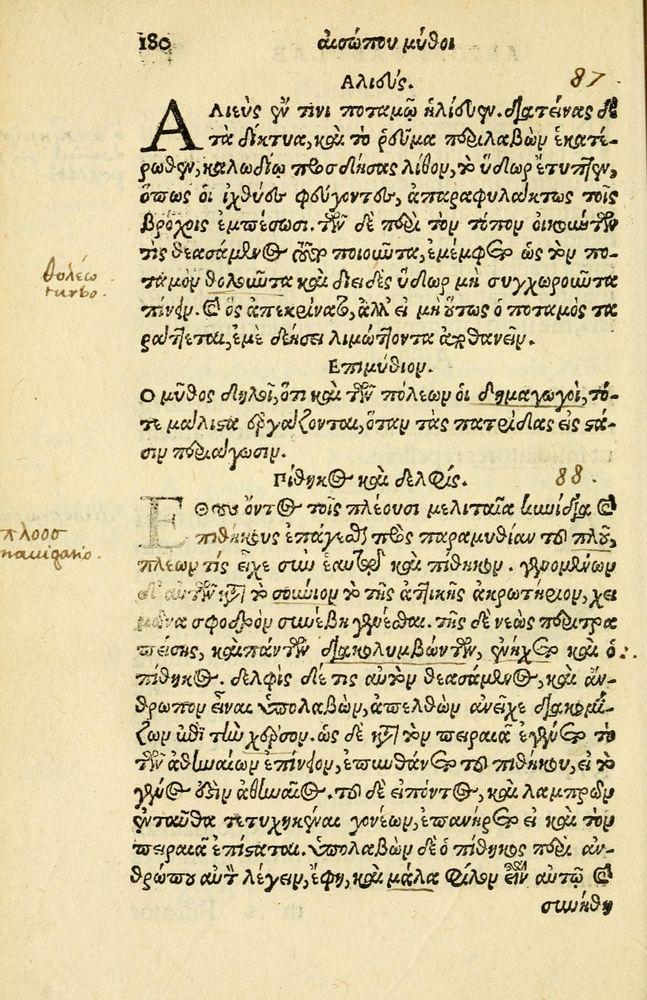 180 αἰσώπου μῦθοι
Αλιεύς. 87.
ΑΛιεὺς ἔν τινι ποταμῷ ἡλίευεν. διατείνας δὲ
τὰ δίκτυα, καὶ τὸ ῥεῦμα περιλαβὼν ἑκατέ-
ρωθεν, καλωδίῳ προσδήσας λίθον, τὸ ὕδωρ ἔτυπτεν,
ὅπως οἱ ἰχθύες φεύγοντες, ἀπαραφυλάκτως τοῖς
βρόχοις ἐμπέσωσι. τῶν δὲ περὶ τὸν τόπον οἰκούντων
τὶς θεασάμενος αὐτὸν ποιοῦντα, ἐμέμφετο ὡς τὸν πο-
ταμὸν θολοῦντα καὶ διειδὲς ὕδωρ μὴ συγχωροῦντα
πίνειν. καὶ ὃς ἀπεκρίνατο, ἀλλ' εἰ μὴ οὕτως ὁ ποταμὸς τα
ράττεται, ἐμὲ δεήσει λιμώττοντα ἀποθανεῖν.
θολέω
turbo.
Επιμύθιον.
Ο μῦθος δηλοῖ, ὅτι καὶ τῶν πόλεων οἱ δημαγωγοὶ, τό-
τε μάλιστα ἐργάζονται, ὅταν τὰς πατρίδας εἰς στά-
σιν περιάγωσιν.
Πίθηκος καὶ δελφίς. 88.
ΕΘους ὄντος τοῖς πλέουσι μελιταῖα κυνίδια καὶ
πιθήκους ἐπάγεσθαι πρὸς παραμυθίαν τοῦ πλοῦ,
πλέων τίς εἶχε σὺν ἑαυτῷ καὶ πίθηκον. γενομένων
δ' αὐτῶν κατὰ τὸ σούνιον τὸ τῆς ἀττικῆς ἀκρωτήριον, χει
μῶνα σφοδρὸν συνέβη γενέσθαι. τῆς δὲ νεὼς περιτρα
πείσης, καὶ πάντων διακολυμβώντων, ἐνήχετο καὶ ὁ
πίθηκος. δελφὶς δέ τις αὐτὸν θεασάμενος, καὶ ἄν-
θρωπον εἶναι ὑπολαβὼν, ἀπελθὼν ἀνεῖχε διακομί-
ζων ἐπὶ τὴν χέρσον. ὡς δὲ κατὰ τὸν πειραιᾶ ἐγένετο τὸ
τῶν ἀθηναίων ἐπίνειον, ἐπυνθάνετο τοῦ πιθήκου, εἰ τὸ
γένος ἐστὶν ἀθηναῖος. τοῦ δὲ εἰπόντος, καὶ λαμπρῶν
ἐνταῦθα τετυχηκέναι γονέων, ἐπανήρετο εἰ καὶ τὸν
πειραιᾶ ἐπίσταται. ὑπολαβὼν δὲ ὁ πίθηκος περὶ ἀν-
θρώπου αὐτὸν λέγειν, ἔφη, καὶ μάλα φίλον εἶναι αὐτῷ καὶ
συνήθη
πλοοσ
nauigatio.